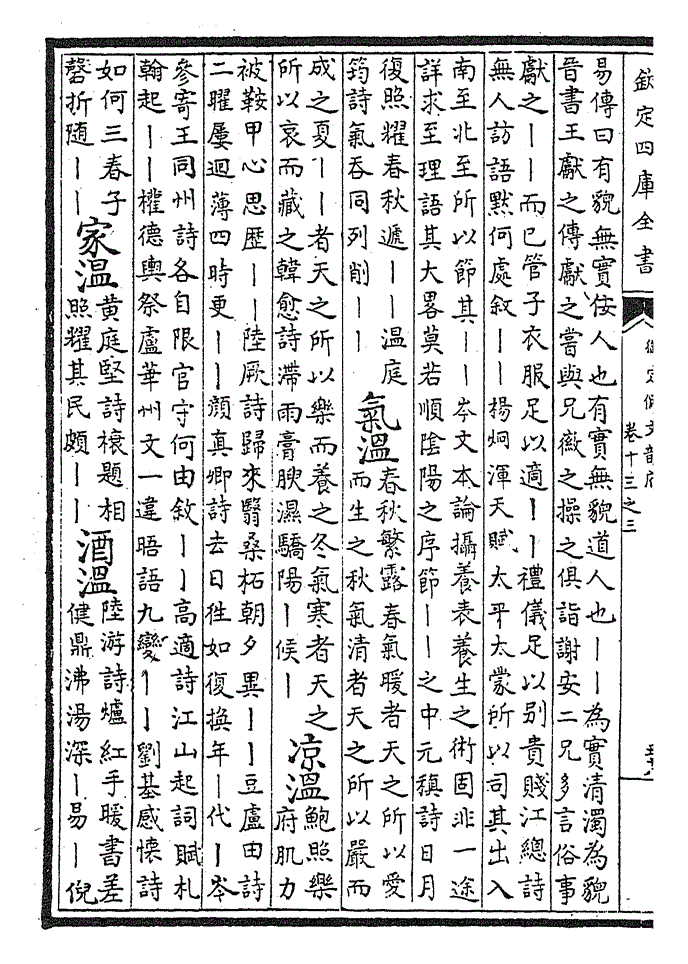 欽定四庫全書
御定佩文韻府
卷十三之三
五十八
易傳曰有貌無實佞人也有實無貌道人也丨丨為實清濁為貌
晉書王獻之傳獻之嘗與兄徽之操之俱詣謝安二兄多言俗事
獻之丨丨而已管子衣服足以適丨丨禮儀足以别貴賤江總詩
無人訪語黙何處敘丨丨楊炯渾天賦太平太蒙所以司其出入
南至北至所以節其丨丨岑文本論攝養表養生之術固非一途
詳求至理語其大畧莫若順陰陽之序節丨丨之中元稹詩日月
復照耀春秋遞丨丨溫庭
筠詩氣吞同列削丨丨
氣溫
春秋繁露春氣暖者天之所以愛
而生之秋氣清者天之所以嚴而
成之夏丨丨者天之所以樂而養之冬氣寒者天之
所以哀而藏之韓愈詩滯雨膏腴濕驕陽丨候丨
凉溫
鮑照樂
府肌力
被鞍甲心思歴丨丨陸厥詩歸來翳桑柘朝夕異丨丨豆盧田詩
二曜屢迴薄四時更丨丨顔真卿詩去日徃如復換年丨代丨岑
參寄王同州詩各自限官守何由敘丨丨高適詩江山起詞賦札
翰起丨丨權德輿祭盧華州文一違晤語九變丨丨劉基感懷詩
如何三春子
磬折隨丨丨
家溫
黄庭堅詩榱題相
照耀其民頗丨丨
酒溫
陸游詩爐紅手暖書差
健鼎沸湯深丨易丨倪